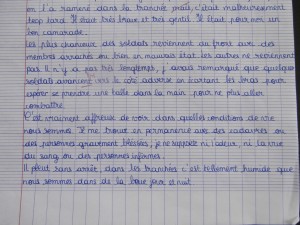 on l'a ramené dans la tranchée mais, c'était malheureusement
trop tard. Il était très brave et très gentil. Il était pour moi un
bon camarade.
Les plus chanceux des soldats reviennent au front avec des
membres arrachés ou bien en mauvais état les autres ne reviennent
pas. Il n'y a pas très longtemps, j'avais remarqué que quelques
soldats arrivaient vers le côté adverse en écartant les bras pour
exposer se prendre une balle dans la main pour ne plus aller
combattre.
C'est vraiment affreux de voir dans quelles conditions de vie
nous sommes. Je me trouve en permanence avec des cadavres ou
des personnes gravement blessées, je ne supporte ni l'odeur, ni la vue
du sang ou des personnes infirmes.
Il pleut sans arrêt, dans les tranchées c'est tellement humide que
nous sommes dans de la boue jour et nuit.